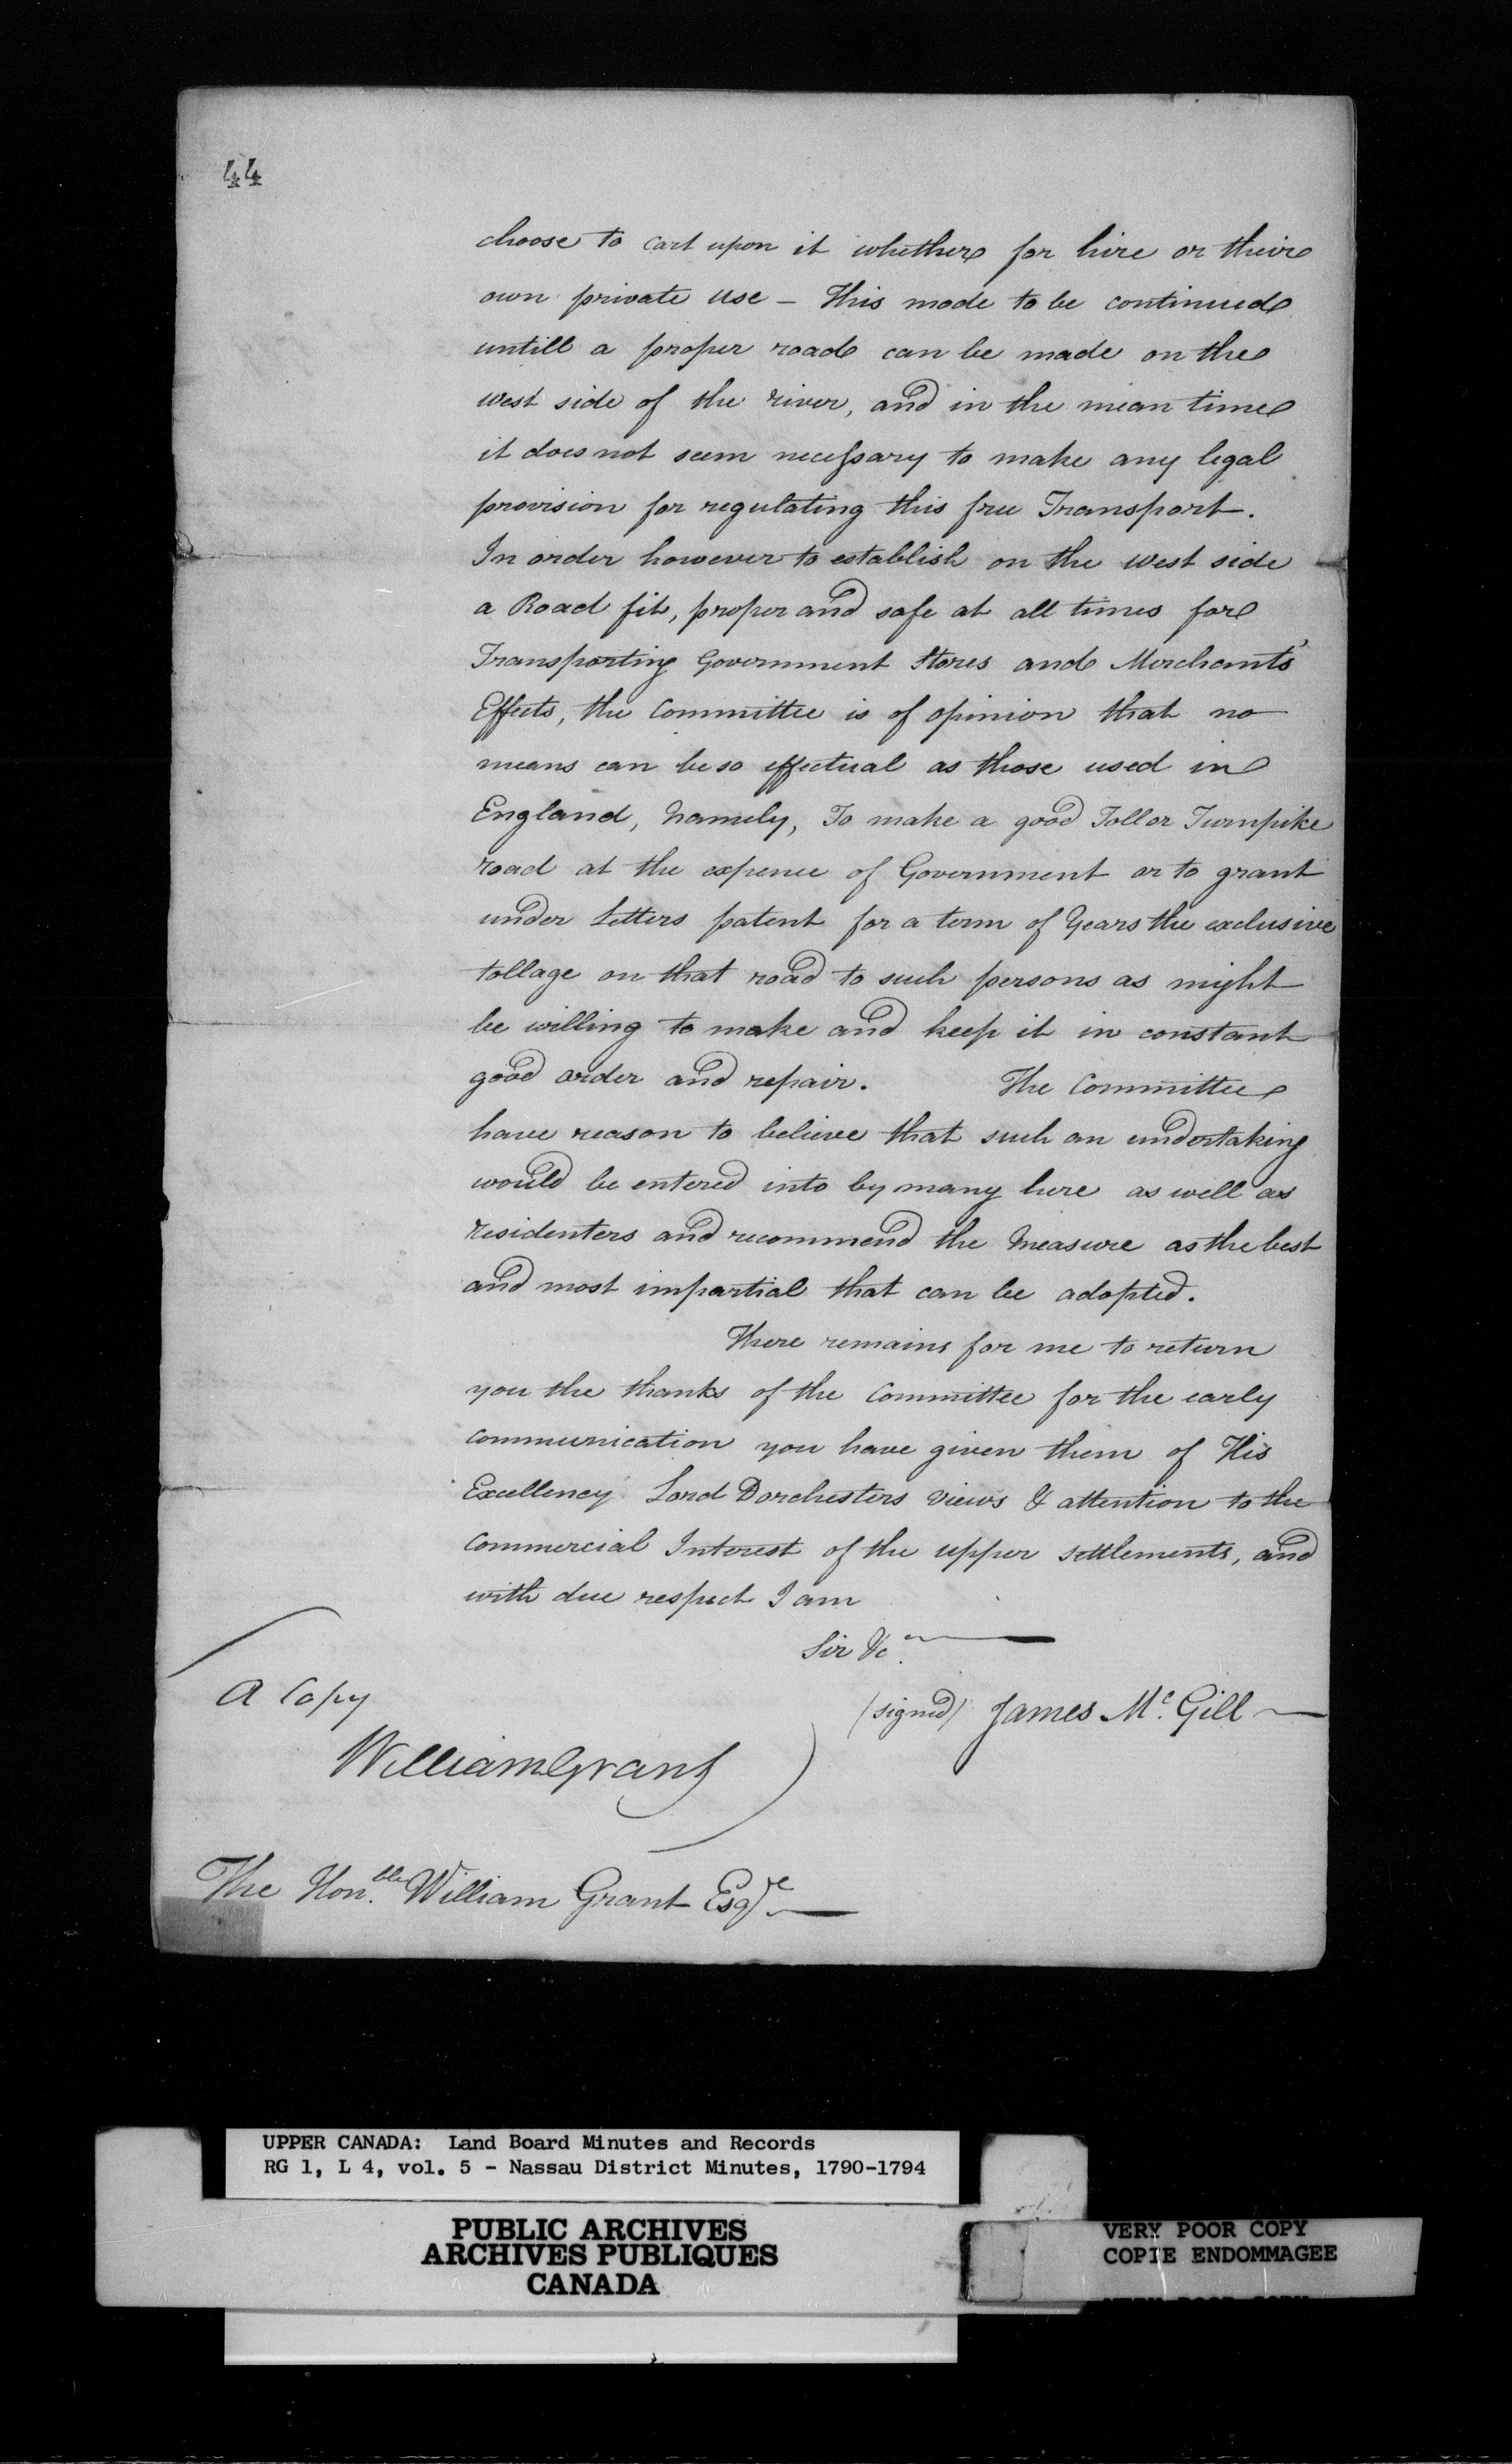 44
choose to cart upon it whether for hire or their
own private use – This mode to be continued
untill a proper road can be made on the
west side of the river, and in the mean time
it does not seem necessary to make any legal
provision for regulating this free Transport.
In order however to establish on the west side
a Road fit, proper and safe at all times for
Transporting Government Stores and Merchants'
Effects, the Committee is of opinion that no
means can be so effectual as those used in
England, Namely, To make a good Toll or Turnpike
road at the expence of Government or to grant
under Letters patent for a term of Years the exclusive
tollage on that road to such persons as might
be willing to make and keep it in constant
good order and repair. The Committee
have reason to believe that such an undertaking
would be entered into by many here as well as
residenters and recommend the Measure as the best
and most impartial that can be adopted.
There remains for me to return
you the thanks of the Committee for the early
communication you have given them of His
Excellency Lord Dorchesters views & attention to the
Commercial Interest of the upper settlements, and
with due respect I am
Sir &c.
A Copy
(signed) James Mc. Gill
William Grant
The Hon.ble William Grant Esqre
UPPER CANADA: Land Board Minutes and Records
RG 1, L 4, vol. 5 - Nassau District Minutes, 1790-1794
PUBLIC ARCHIVES
ARCHIVES PUBLIQUES
CANADA
VERY POOR COPY
COPIE ENDOMMAGEE